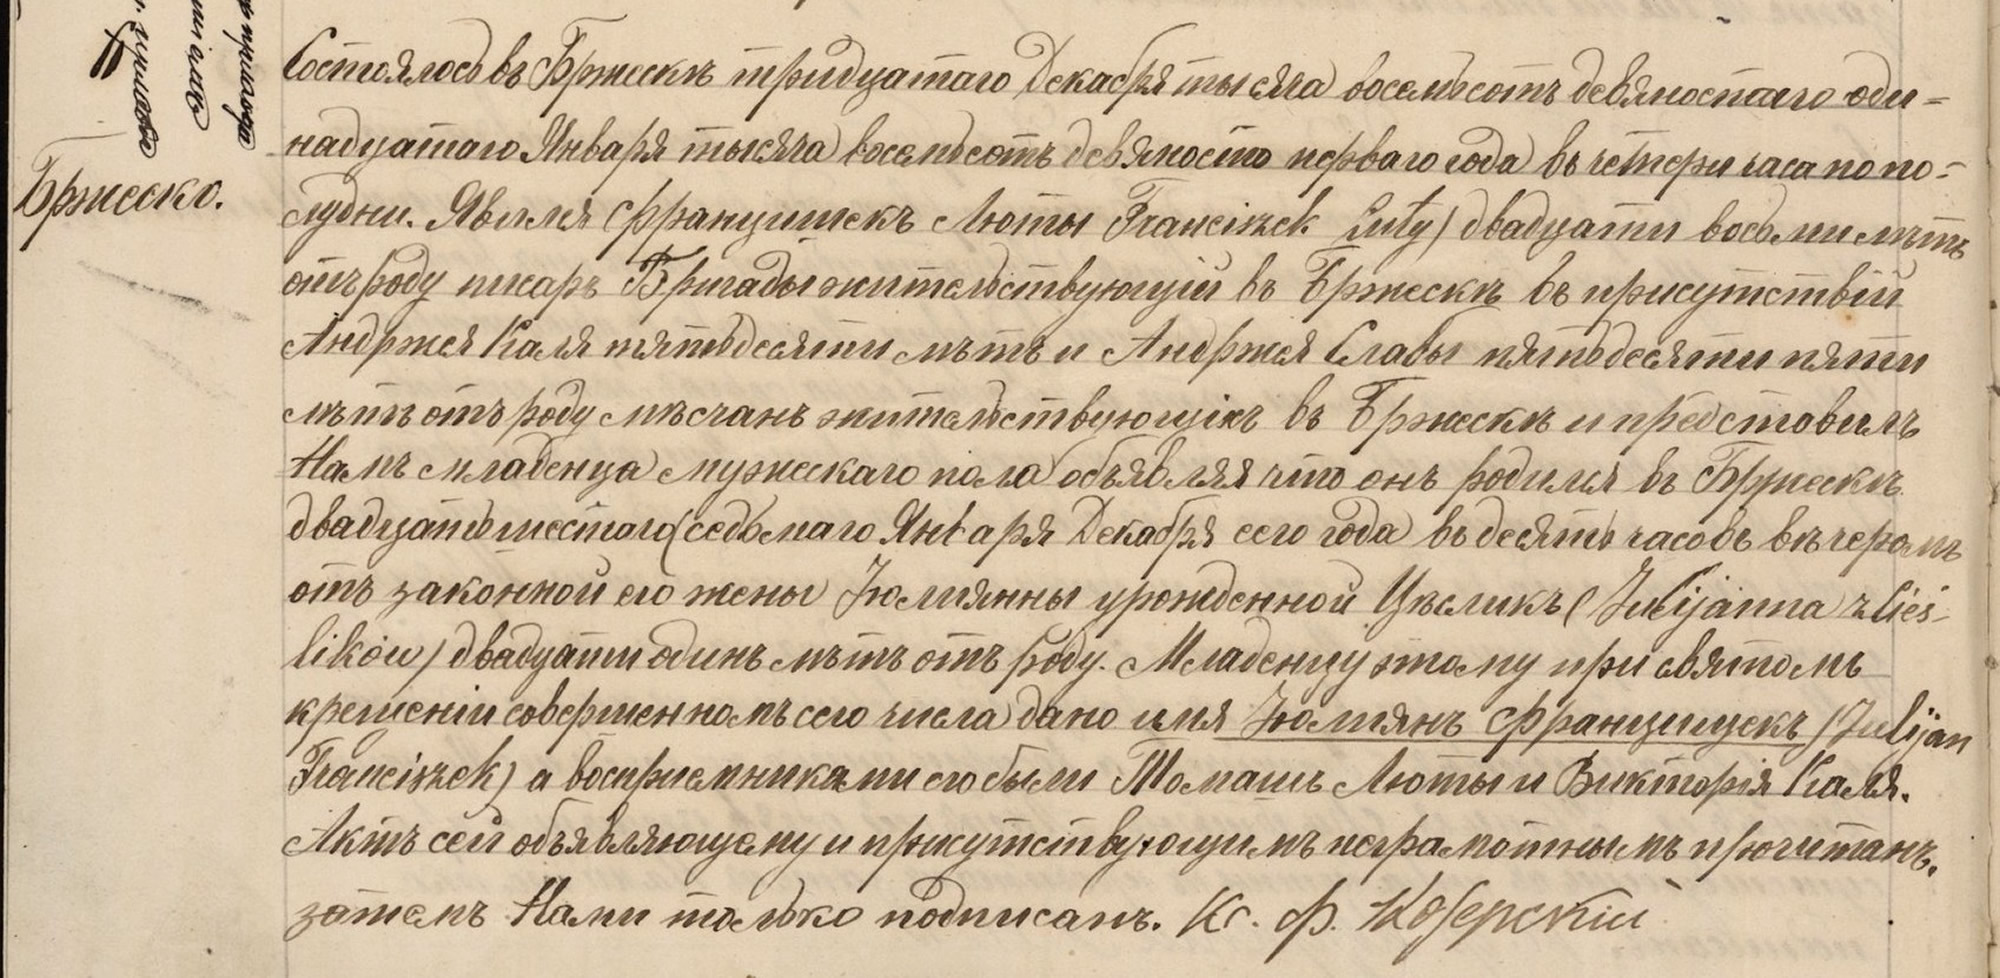 Бржеско.
Состоялось въ Бржескѣ тридцатаго Декабря тысяча восемьсотъ девяностаго оди-
надцатаго Января тысяча восемьсотъ девяносто перваго года въ четери часа по по-
лудни. Явился Францишекъ Люты Franciszek Luty) двадцати восьми лѣтъ
отъ роду писарь Бригады жительствующій въ Бржескѣ въ присутствій
Андржея Каля пятьдесяти лѣтъ и Андржея Слабы пятьдесяти пяти
лѣтъ отъ роду мѣсчанъ жительствующихъ въ Бржескѣ и представилъ
Намъ младенца мужескаго пола объявляя что онъ родился въ Бржескѣ
двадцать шестаго (седьмаго Января Декабря сего года въ десять часовъ вѣчеромъ
отъ законной его жены Юлиянны урожденной Цѣсликъ (Julijanna z Cieś-
lików) двадцати одинъ лѣтъ отъ роду. Младенцу этому при святомъ
крещеніи совершенномъ сего числа дано имя Юлиянъ Францищекъ (Julijan
Franciszek) а воспріемниками его были Томашъ Люты и Викторія Каля.
Актъ сей объявляющему и присутствующимъ неграмотнымъ прочитанъ.
затемъ Нами только подписанъ. Кс. Ф. Козерскій